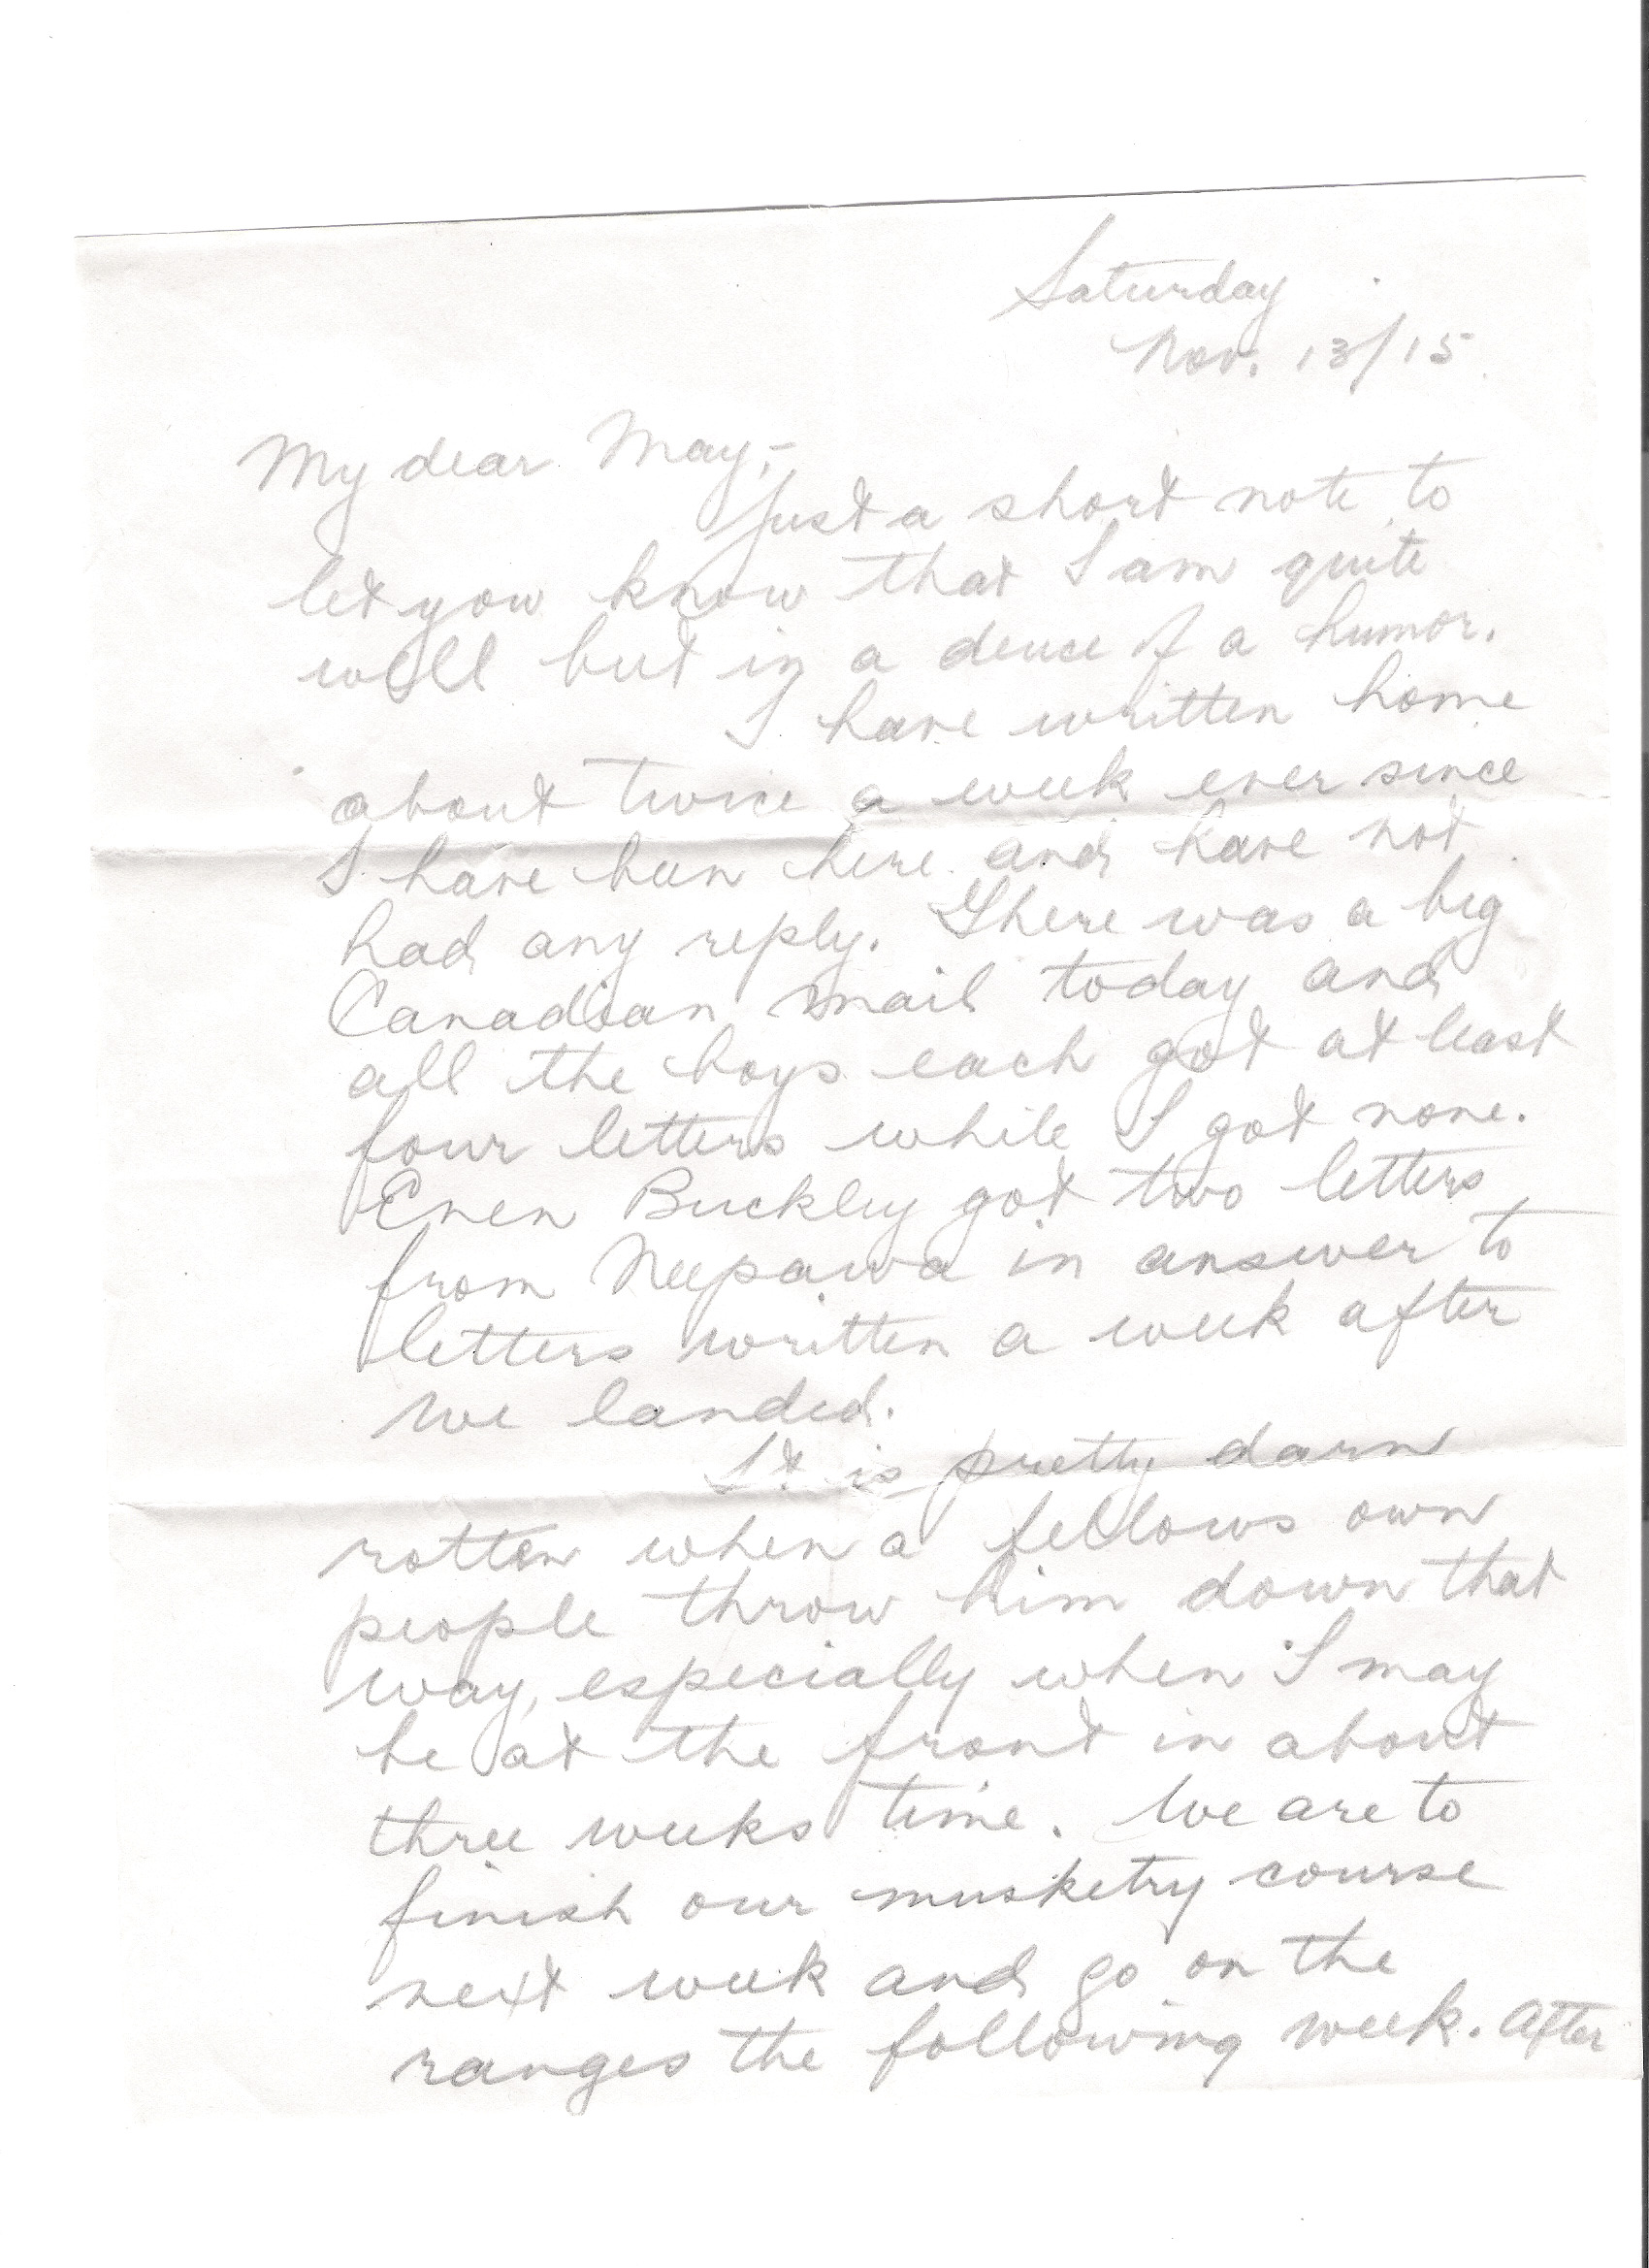 Saturday
Nov. 13/15
My dear May;-
Just a short note to
let you know that I am quite
well but in a deuce of a humor.
I have written home
about twice a week ever since
I have been here and have not
had any reply. There was a big
Canadian mail today and
all the boys each got at least
four letters while I got none.
Even Buckley got two letters
from Neepawa in answer to
letters written a week after
we landed.
It is pretty darn
rotten when a fellows own
people throw him down that
way, especially when I may
be at the front in about
three weeks time. We are to
finish our musketry course
next week and go on the
ranges the following week. After